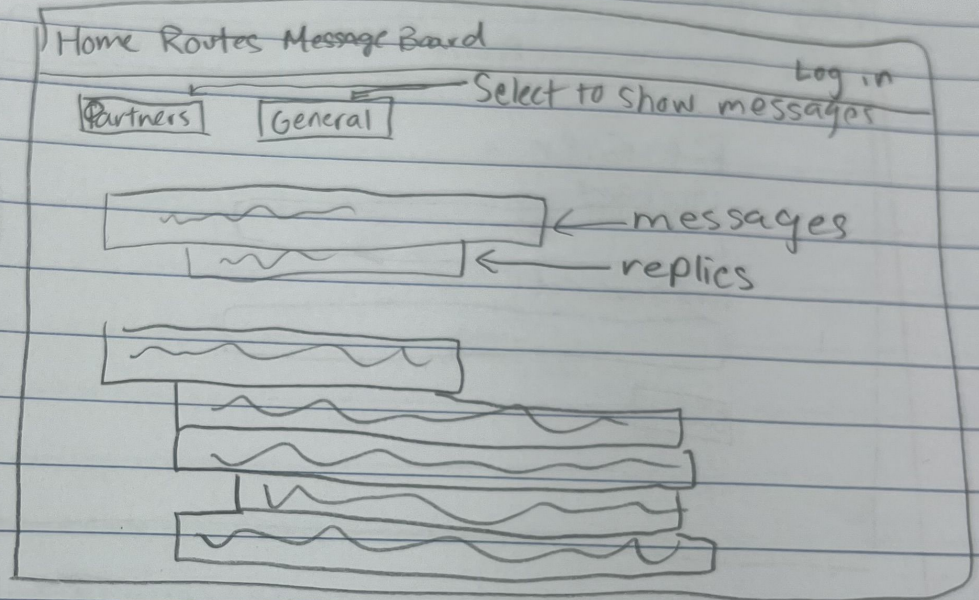 Home Routes Message Board
Log in
Select to show messages
Partners General
messages
replies